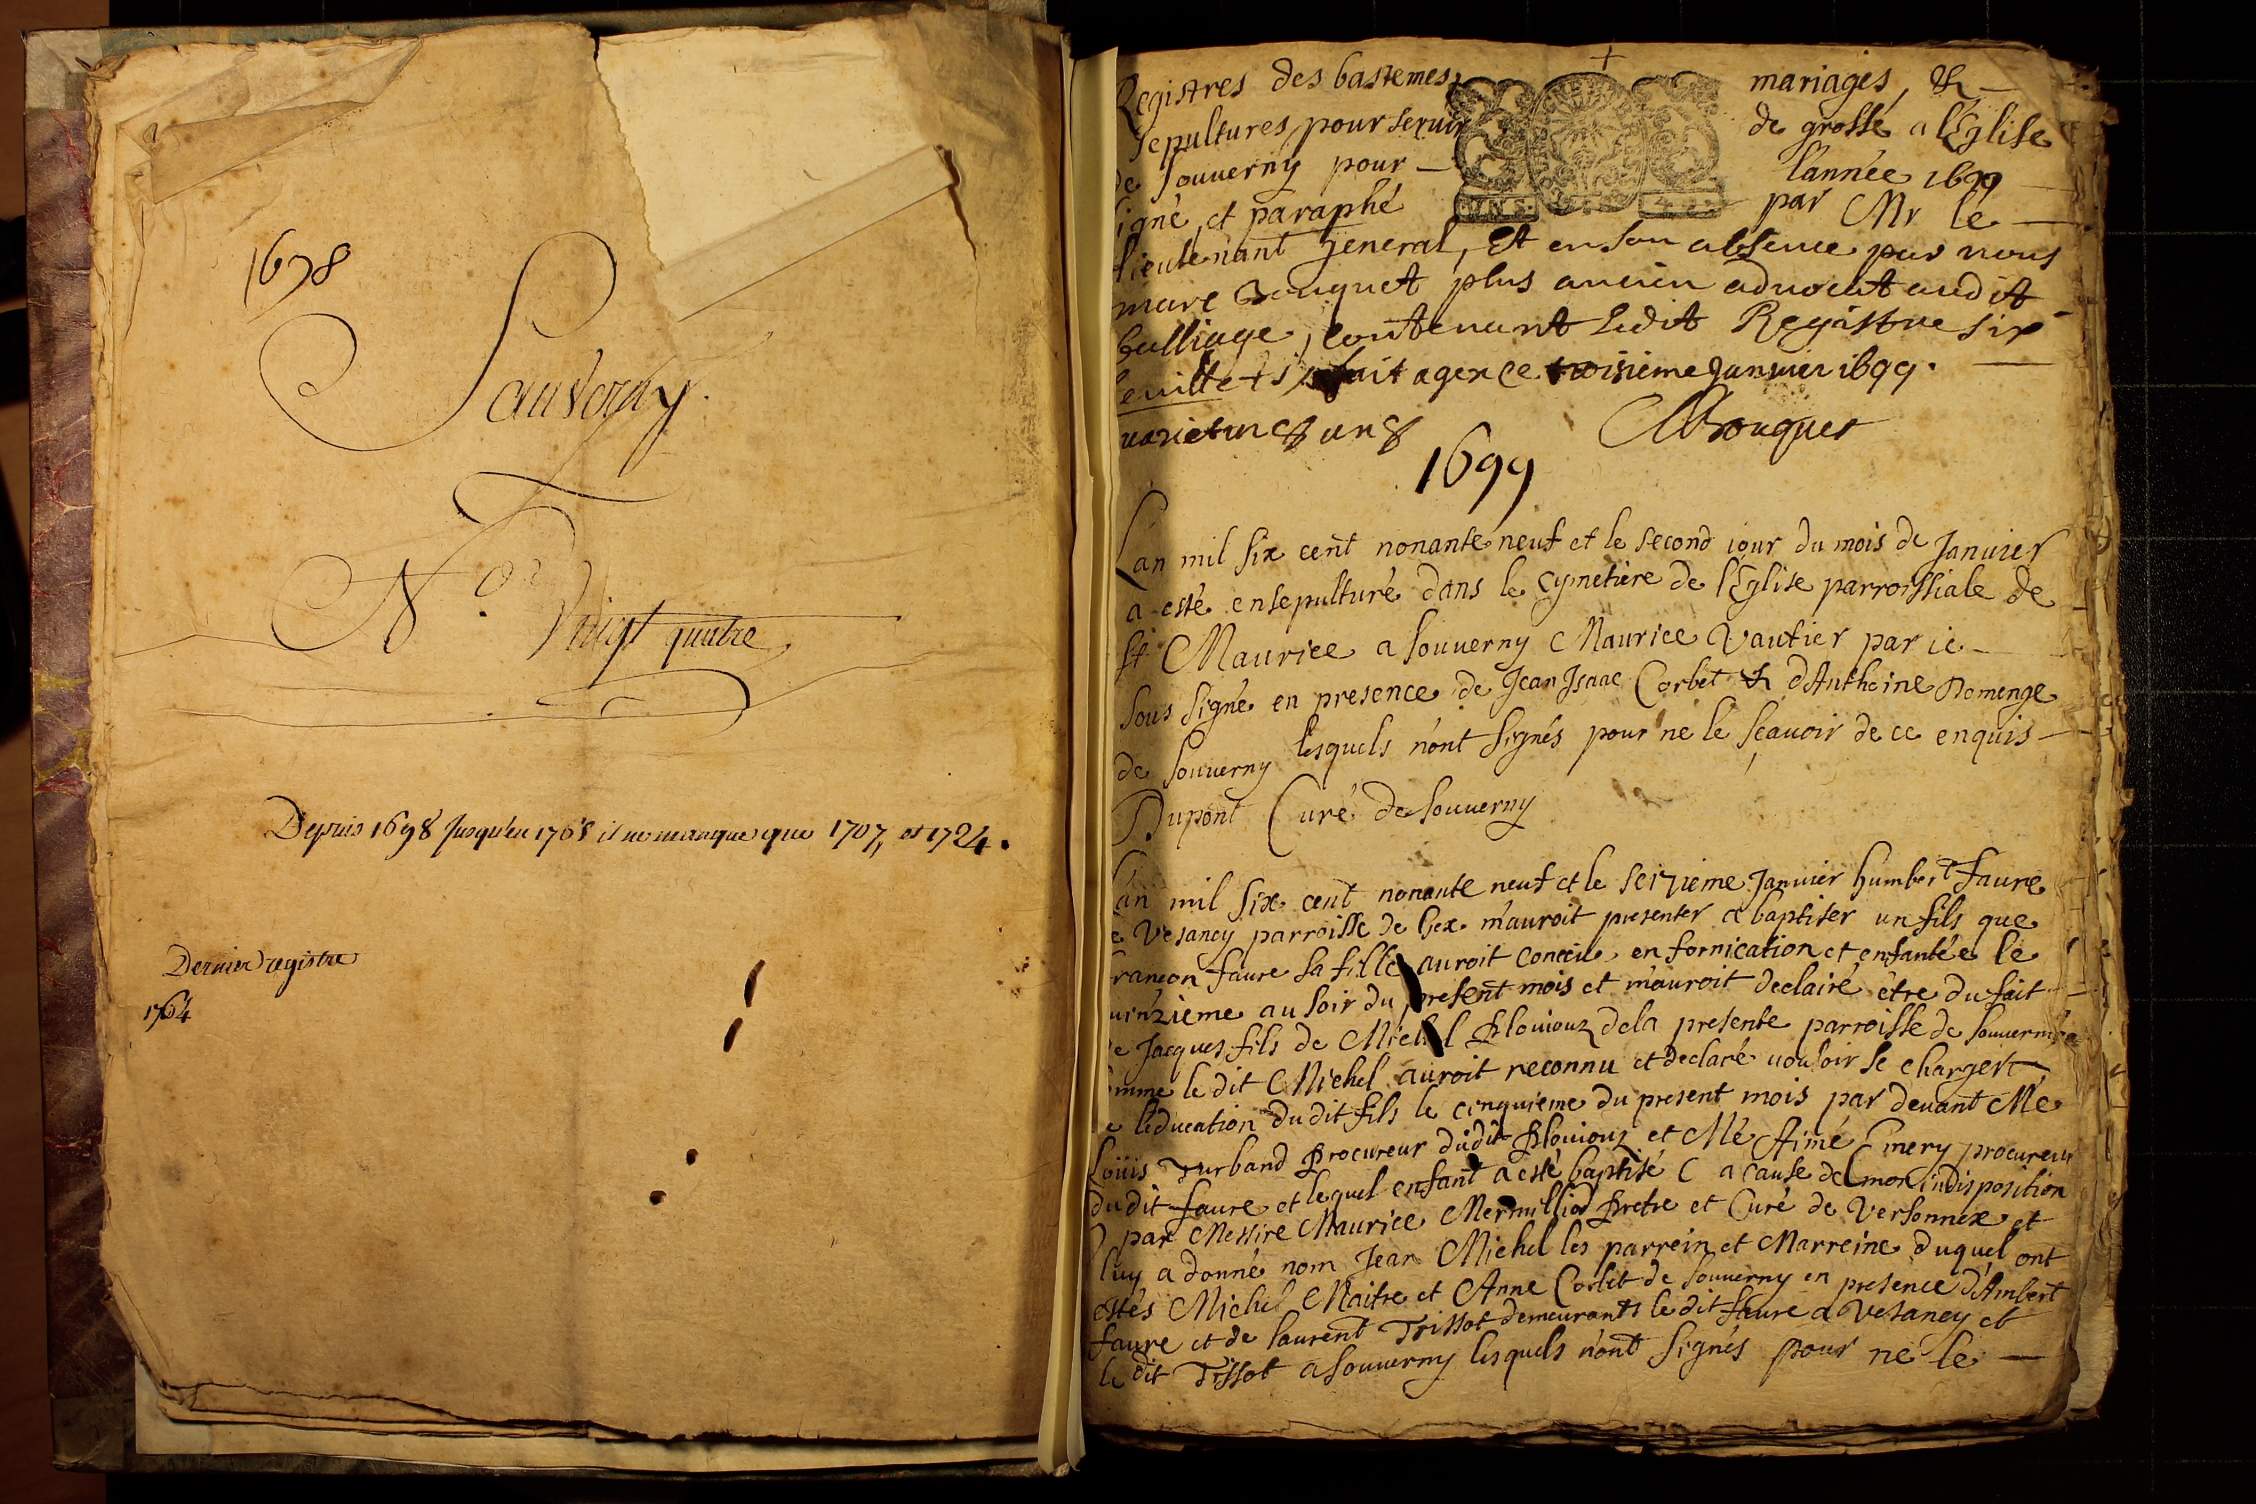 1698
Sauverny.
N.° Vingt quatre
Depuis 1698 jusqu'en 1765 il ne manque que 1707, et 1724.
Dernier registre
1764
Registres des bastemes, mariages, &
sepultures, pour servir de grosse a l'Eglise
de Souuerny pour l'année 1699
signé, et paraphé par Mr le
lieutenant general, Et en son absence par nous
marc Bouquet plus ancien aduocat audit
balliage, contenant ledit Registre six
feuillets, fait a gex ce troisieme Januier 1699.
MBouquet
1699
L'an mil six cent nonante neuf et le second iour du mois de Januier
a esté ensepulturé dans le cymetiere de l'Eglise parroissiale de
st Maurice a Souuerny Maurice Vautier par ie
sous signé en presence de Jean Isaac Corbet & d'Anthoine Domenge
de Souuerny lesquels n'ont signés pour ne le sçauoir de ce enquis
Dupont Curé de Souuerny
L'an mil six cent nonante neuf et le seizieme Januier humbert faure
de Vesancy parroisse de Gex m'auroit presenter a baptiser un fils que
françon faure sa fille auroit conceu en fornication et enfantée le
quinzieme au soir du present mois et m'auroit declairé être du fait
de Jacques fils de Michel Plouiouz dela presente parroisse de Souuerny
comme le dit Michel auroit reconnu et declaré uouloir se charger
de l'education du dit fils le cinquieme du present mois par deuant Me
Loüis Turband Procureur dudit Plouiouz et Me Aimé Emery procureur
du dit faure et lequel enfant a esté baptisé ( a cause de mon indisposition
) par Messire Maurice Mermilliod Pretre et Curé de Versonnex et
luy a donné nom Jean Michel les parrein et Marreine duquel ont
estés Michel Maitre et Anne Corbet de Souuerny en presence d'Ambert
faure et de laurent Tissot demeurants le dit faure a Vesancy et
le dit Tissot a Souuerny lesquels n'ont signés pour ne le